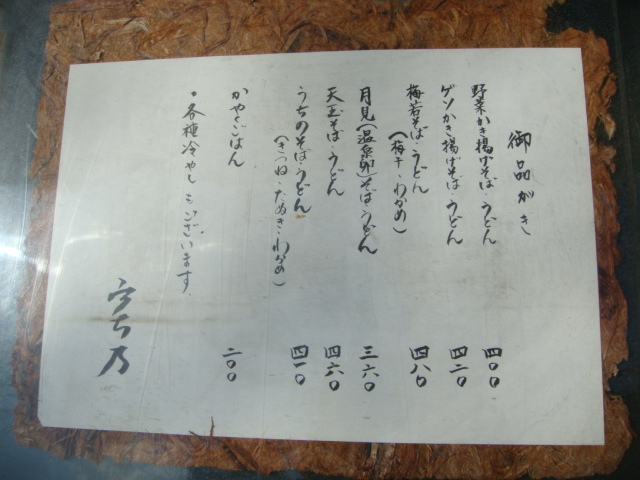 御品がき
野菜かき揚げそば・うどん 四〇〇
ゲソかき揚げそば・うどん 四二〇
梅若そば・うどん 四八〇
(梅干・わかめ)
月見(温泉卵)そば・うどん 三六〇
天玉そば・うどん 四六〇
うちのそば・うどん 四一〇
(きつね・たぬき・わかめ)
かやくごはん 二〇〇
・各種冷やしもございます。
うち乃